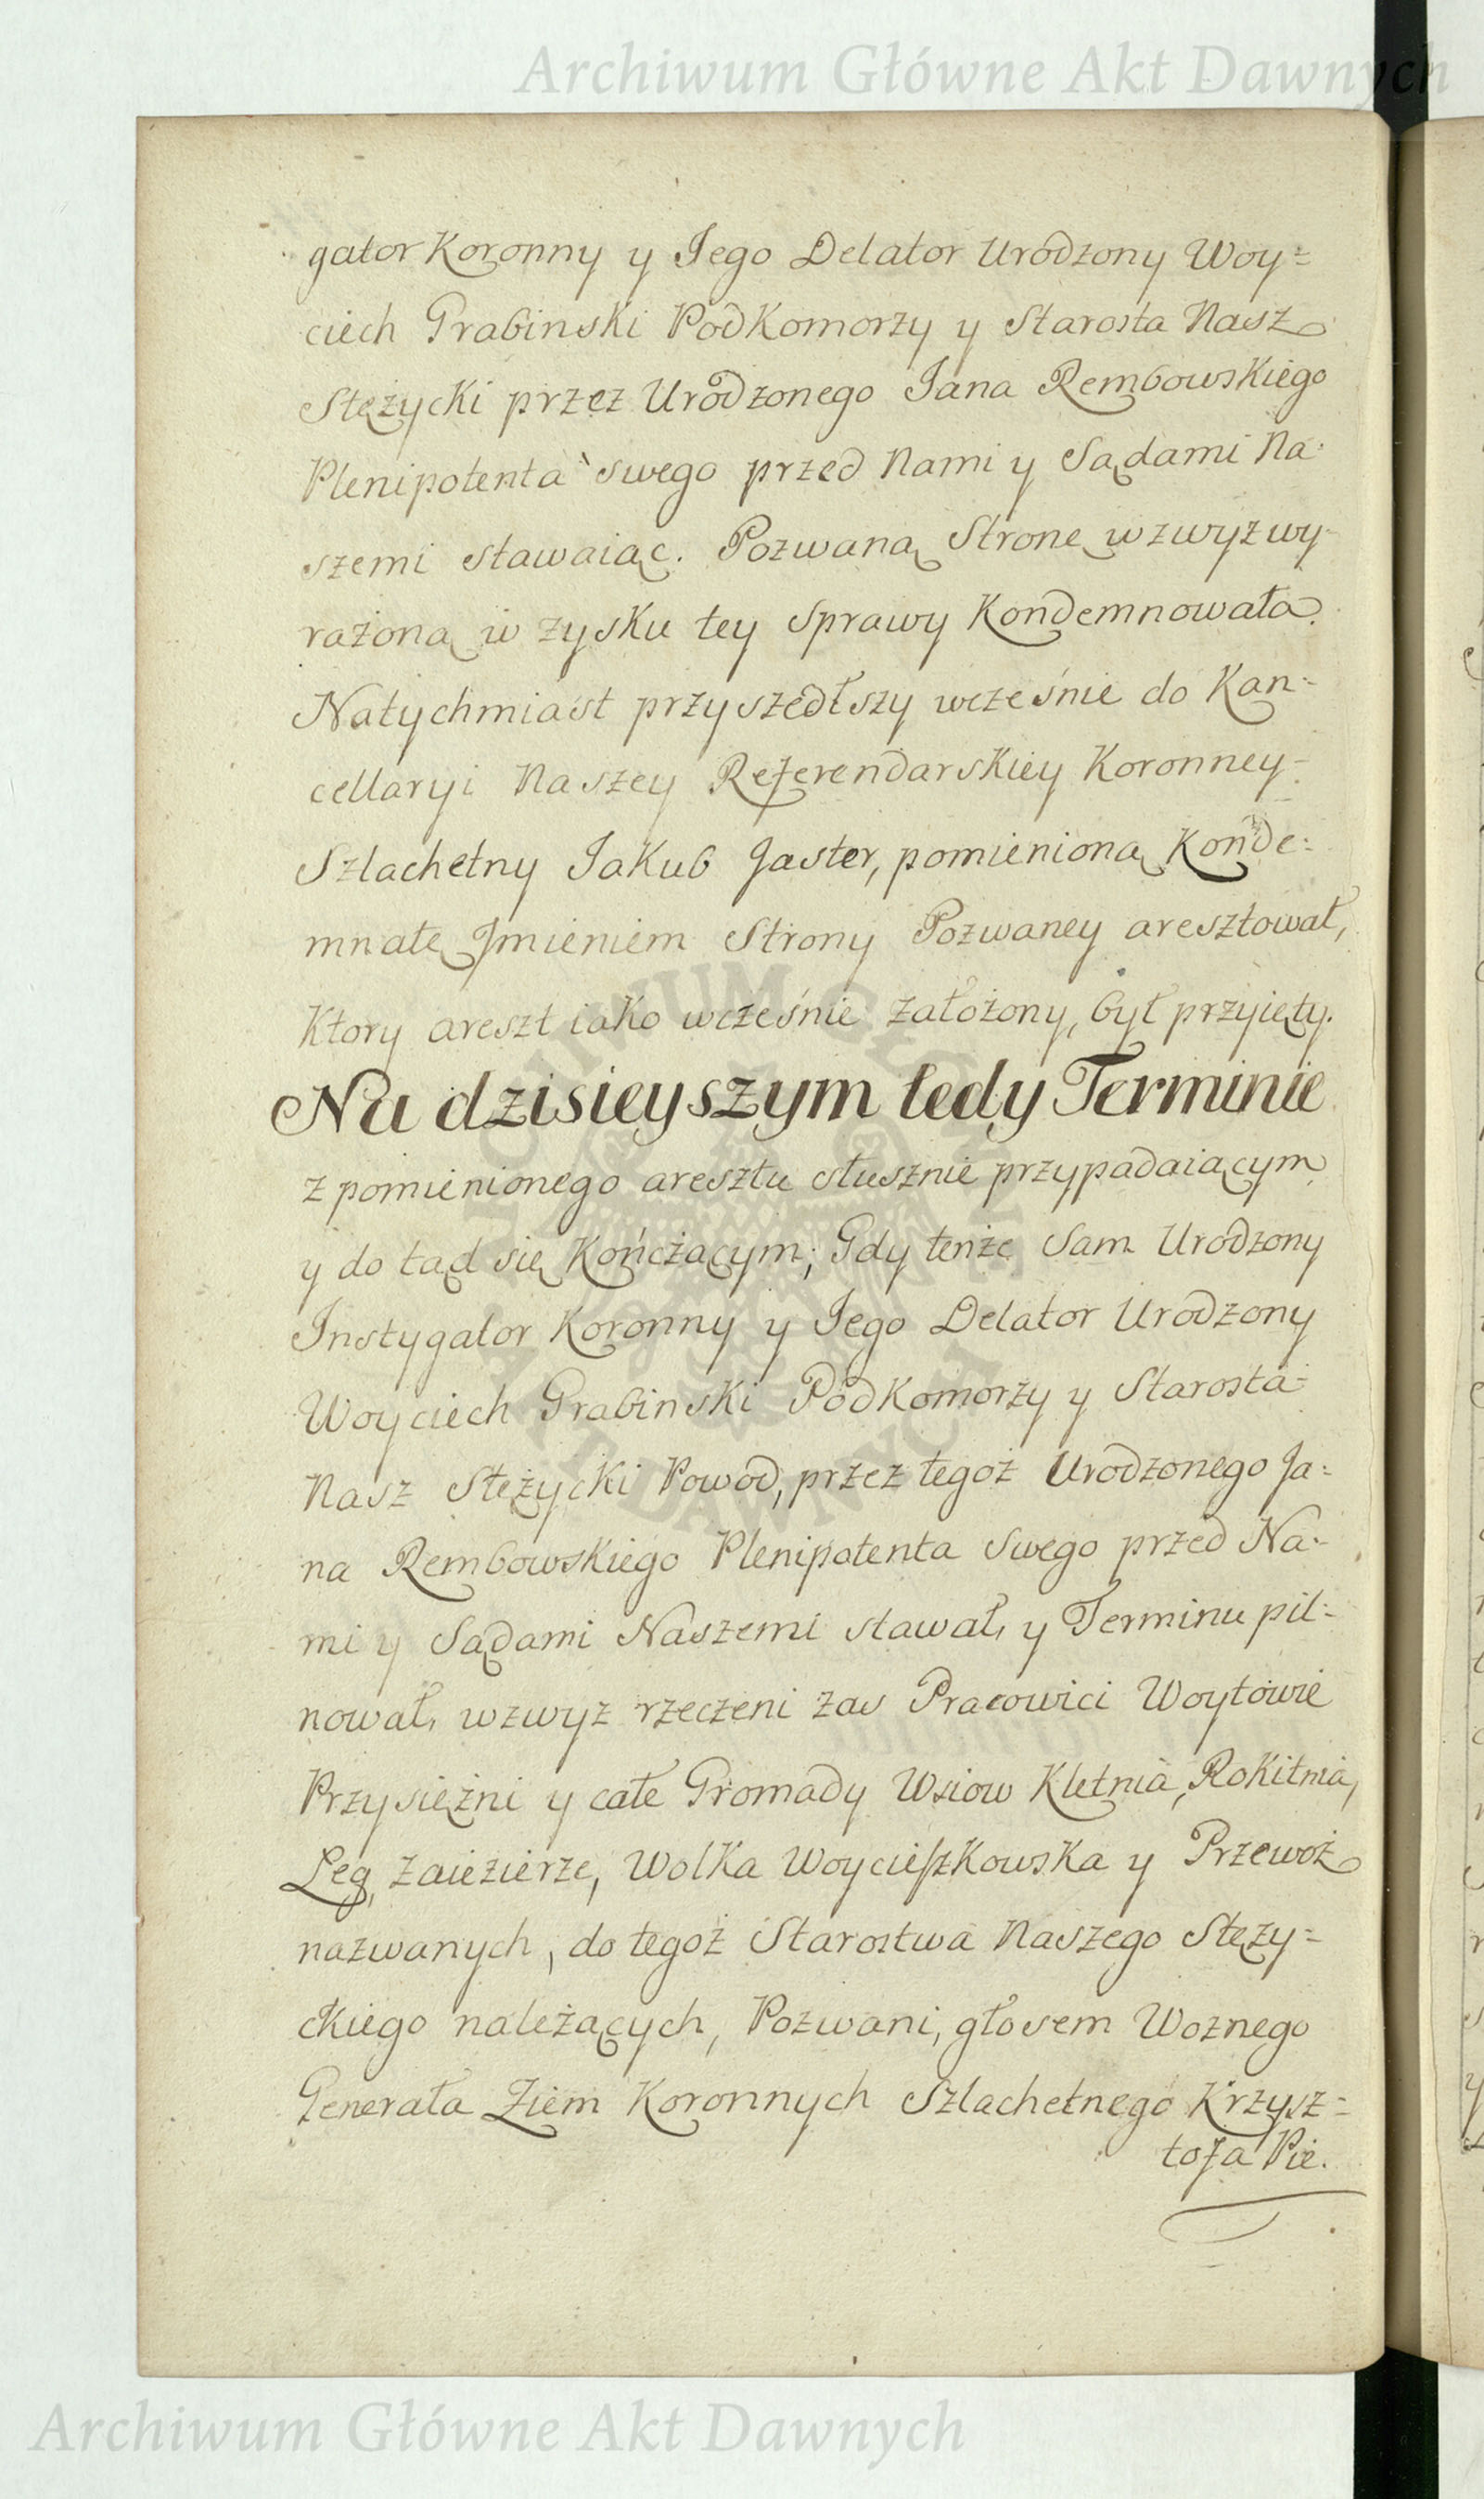 Archiwum Główne Akt Dawnych
gator Koronny y Jego Delator Urodzony Woy=
ciech Grabinski PodKomorzy y Starosta Nasz
Stężycki przez Urodzonego Jana Rembowskiego
Plenipotenta swego przed Nami y Sądami Na:
szemi stawaiąc. Pozwaną Stronę wzwyz wy-
rażoną w zysku tey sprawy Kondemnowała.
Natychmiast przyszedłszy wcześnie do Kan:
cellaryi Naszey Referendarskiey Koronney
Szlachetny Jakub Jaster, pomienioną Konde:
mnatę Jmieniem Strony Pozwaney aresztował,
Ktory areszt iako wcześnie założony, był przyięty.
Na dzisieyszym tedy Terminie
z pomienionego aresztu słusznie przypadaiącym
y do tąd się Kończącym; Gdy tenże Sam Urodzony
Instygator Koronny y Jego Delator Urodzony
Woyciech Grabinski PodKomorzy y Starosta
Nasz Stężycki Powod, przez tegoż Urodzonego Ja:
na Rembowskiego Plenipotenta Swego przed Na:
mi y Sądami Naszemi stawał, y Terminu pil:
nował, wzwyz rzeczeni zas Pracowici Woytowie
Przysiężni y całe Gromady Wsiow Kletnia, Rokitnia,
Łęg, Zaiezierze, Wolka Woycieszkowska y Przewoż
nazwanych, do tegoż Starostwa Naszego Stęzy=
ckiego należących, Pozwani, głosem Woznego
Generała Ziem Koronnych Szlachetnego Krzysz=
tofa Pie.
ARCHIWUM GŁÓWNE AKT DAWNYCH
Archiwum Główne Akt Dawnych